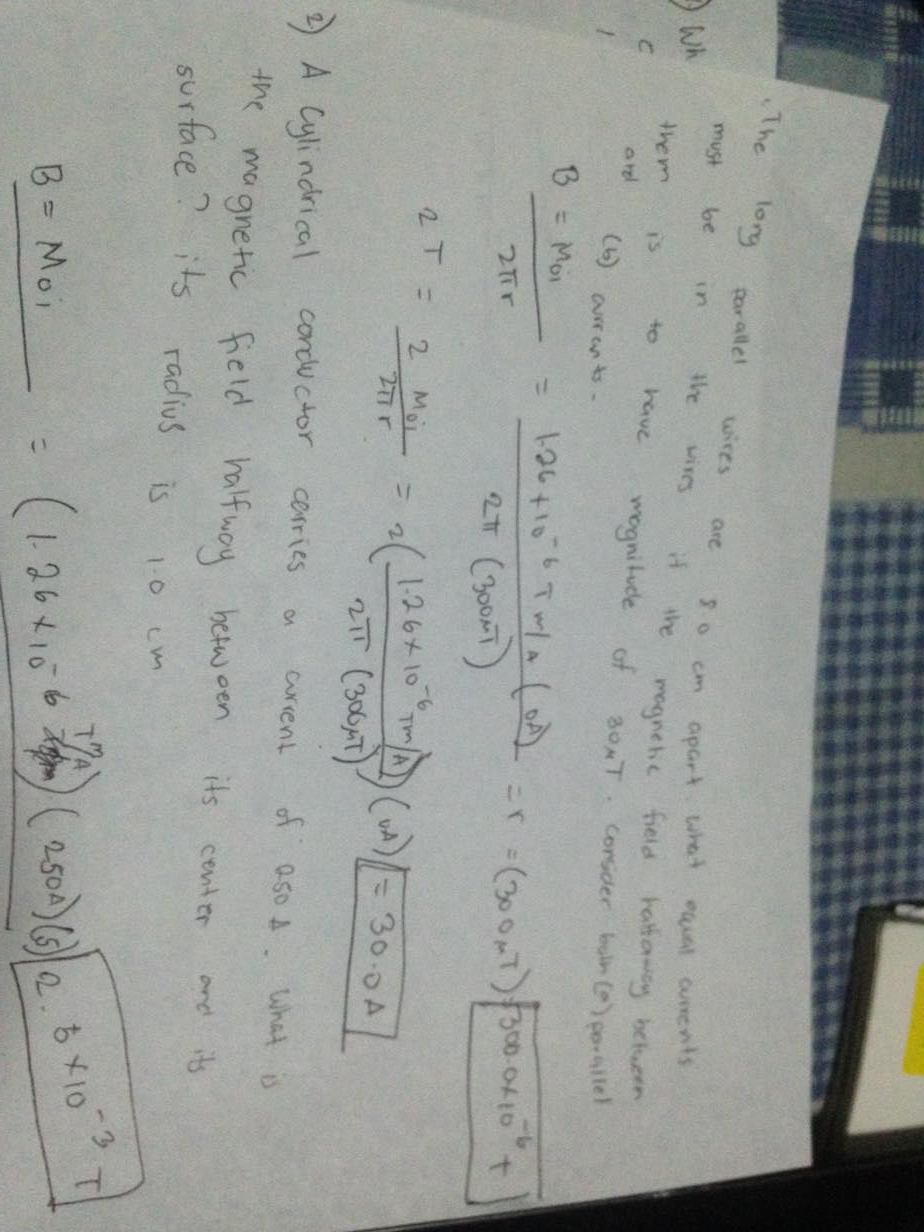 . The long parallel wires are 8.0 cm apart. what equal currents
must be in the wires if the magnetic field halfaway between
them is to have magnitude of 30μT. consider both (a) parallel
and (b) currents.
B = Moi / 2πr = 1.26+10^-6 Tm/A (0A) / 2π (300μT) = r = (300μT) 300.0x10^-6 T
2 T = 2 Moi / 2πr = 2(1.26x10^-6 Tm/A / 2π (300μT)) (0A) = 30.0A
2) A Cylindrical conductor carries a current of 250 A. What is
the magnetic field halfway between its center and its
surface? its radius is 1.0 cm
B = Moi = (1.26x10^-6 Tm/A) (250A)(5) 2.5x10^-3 T
Wh
c
1